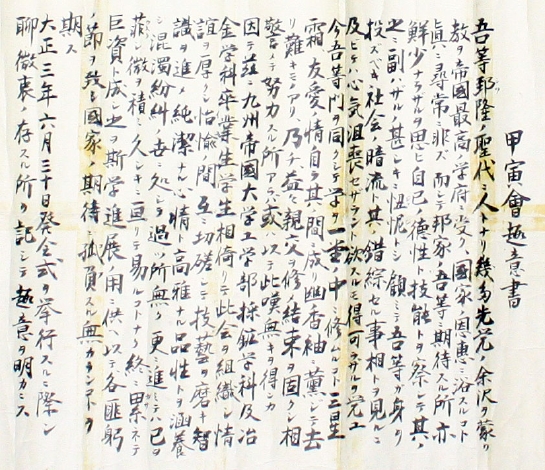 甲寅會趣意書
吾等邦隆ノ聖代ニ人トナリ幾多先覚ノ余沢ヲ蒙リ
教ヲ帝國最高ノ学府ニ受ク國家ノ恩惠ニ浴スルコト
眞ニ尋常ニ非ズ而シテ邦家ノ吾等ニ期待スル所亦
鮮少ナラザルヲ思ヒ自己ノ徳性ト技能トヲ察シテ其ノ
之ニ副ハサルノ甚シキニ忸怩トシ顧ミテ吾等ガ身ヲ
投ズベキ社会ノ暗流ト其ノ錯綜セル事相ヲ見ルニ
及ヒテハ心気沮喪セサラント欲スルモ得可ラサルヲ覚ユ
今吾等門ヲ同クシ学ヲ一堂ノ中ニ修ムルコト三星
霜友愛ノ情自ラ其ノ間ニ成リ幽香紬薫トシテ去
リ難キモノアリ乃チ益親交ヲ修メ結束ヲ固クシ相
警メテ努力スル所アラハ或ハ以テ此嘆無キヲ得ンカ
因テ茲ニ九州帝國大学工学部採鉱学科及冶
金学科卒業生学生相倚リテ此会ヲ組織シ情
誼ヲ厚クシ怡愉ノ間ニ互ニ切磋シテ技藝ヲ磨キ智
識ヲ進メ純潔ナル心情ト高雅ナル品性トヲ涵養
シ混濁紛糾ノ世ニ処シテ過ツ所無ク更ニ進ミテハ己ヲ
菲シ微ヲ積ミ久シキニ亘リテ易ルコトナク終ニ累ネテ
巨資ト成シ之ヲ斯学進展ノ用ニ供ヘ以テ各匪躬
ノ節ヲ致シ國家ノ期待ニ孤負スル無カランコトヲ
期ス
大正三年六月三十日発会式ヲ挙行スルニ際シ
聊微衷ノ存スル所ヲ記シテ趣意ヲ明カニス